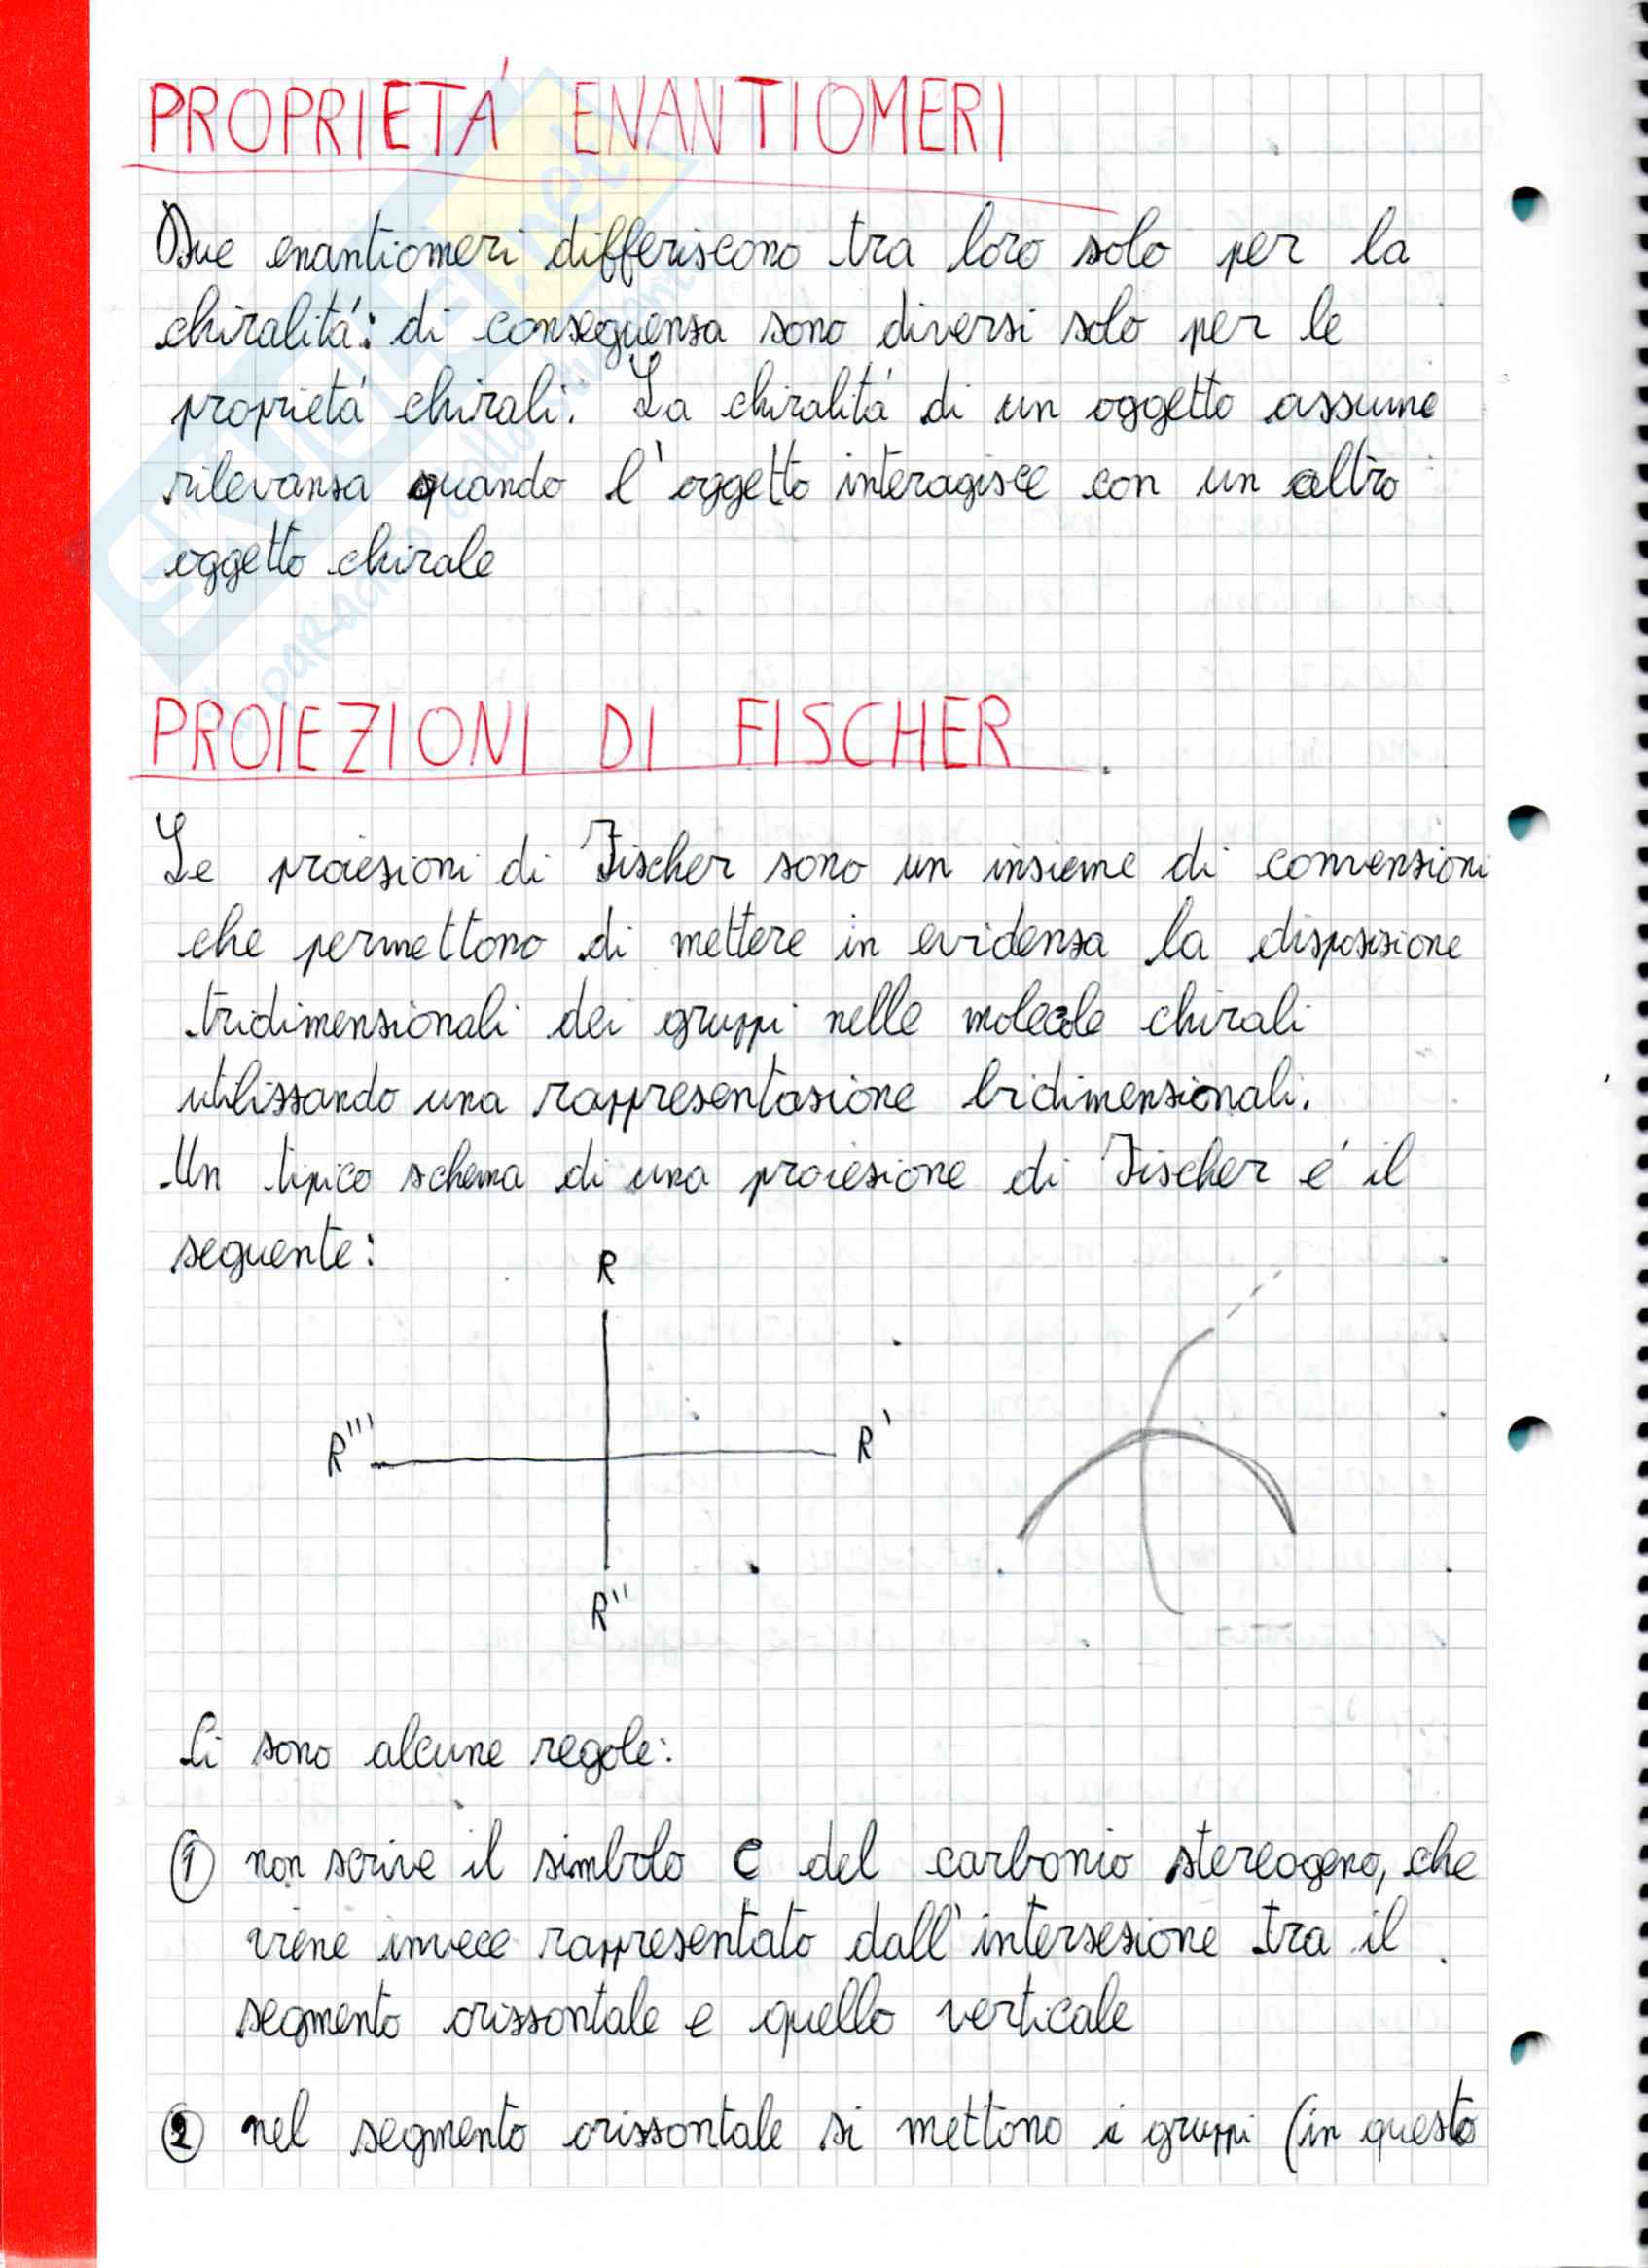 PROPRIETÁ ENANTIOMERI
Due enantiomeri differiscono tra loro solo per la
chiralitá: di conseguenza sono diversi solo per le
proprietá chirali. La chiralitá di un oggetto assume
rilevanza quando l'oggetto interagisce con un altro
oggetto chirale
PROIEZIONI DI FISCHER
Le proiezioni di Fischer sono un insieme di convenzioni
che permettono di mettere in evidenza la disposizione
tridimensionali dei gruppi nelle molecole chirali
utilizzando una rappresentazione bidimensionali.
Un tipico schema di una proiezione di Fischer é il
seguente:
R
R''' R'
R''
Ci sono alcune regole:
1 non scrive il simbolo C del carbonio stereogeno, che
viene invece rappresentato dall'intersezione tra il
segmento orizzontale e quello verticale
2 nel segmento orizzontale si mettono i gruppi (in questo